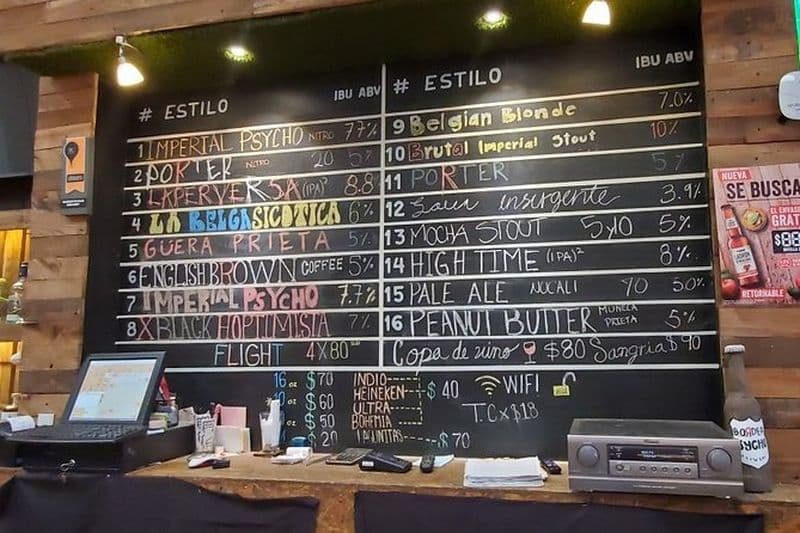 # ESTILO IBU ABV
1 IMPERIAL PSYCHO NITRO 7.7%
2 PORTER NITRO 20 5%
3 LAPERVERSA (IPA)² 8.8
4 LA BELGASICOTICA 6%
5 GÜERA PRIETA 5%
6 ENGLISH BROWN COFFEE 5%
7 IMPERIAL PSYCHO 7.7%
8 XBLACK HOPTIMISTA 7%
FLIGHT 4X80
# ESTILO IBU ABV
9 Belgian Blonde 7.0%
10 Brutal Imperial Stout 10%
11 PORTER 5%
12 insurgente 3.9%
13 MOCHA STOUT 5y10 5%
14 HIGH TIME (IPA)² 8%
15 PALE ALE NUCALI 50%
16 PEANUT BUTTER MUÑECA PRIETA 5%
Copa de vino $80 Sangria $90
16 oz $70
$60
$50
$20
INDIO
HEINEKEN
ULTRA
BOHEMIA
$40
LAGUNITAS $70
WIFI
T.C x $18
NUEVA
SE BUSCA
GRATIS
RETORNABLE
BORDER PSYCHO